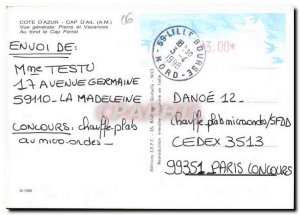 CÔTE D'AZUR - CAP D'AIL (A.M.)
Vue générale: Pierre et Vacances
Au fond le Cap Ferrat
06
59-LILLE BOURSE
NORD
3.00*
ENVOI DE:
Mme TESTU
17 AVENUE GERMAINE
59110 - LA MADELEINE
CONCOURS: chauffe plats
au micro-ondes
DANOË 12
Chauffe plat microonde/SFDD
CEDEX 3513
99351 PARIS CONCOURS